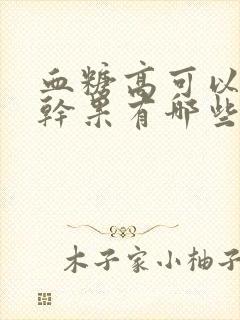 血糖高可以
幹果有哪些
木子家小柚子